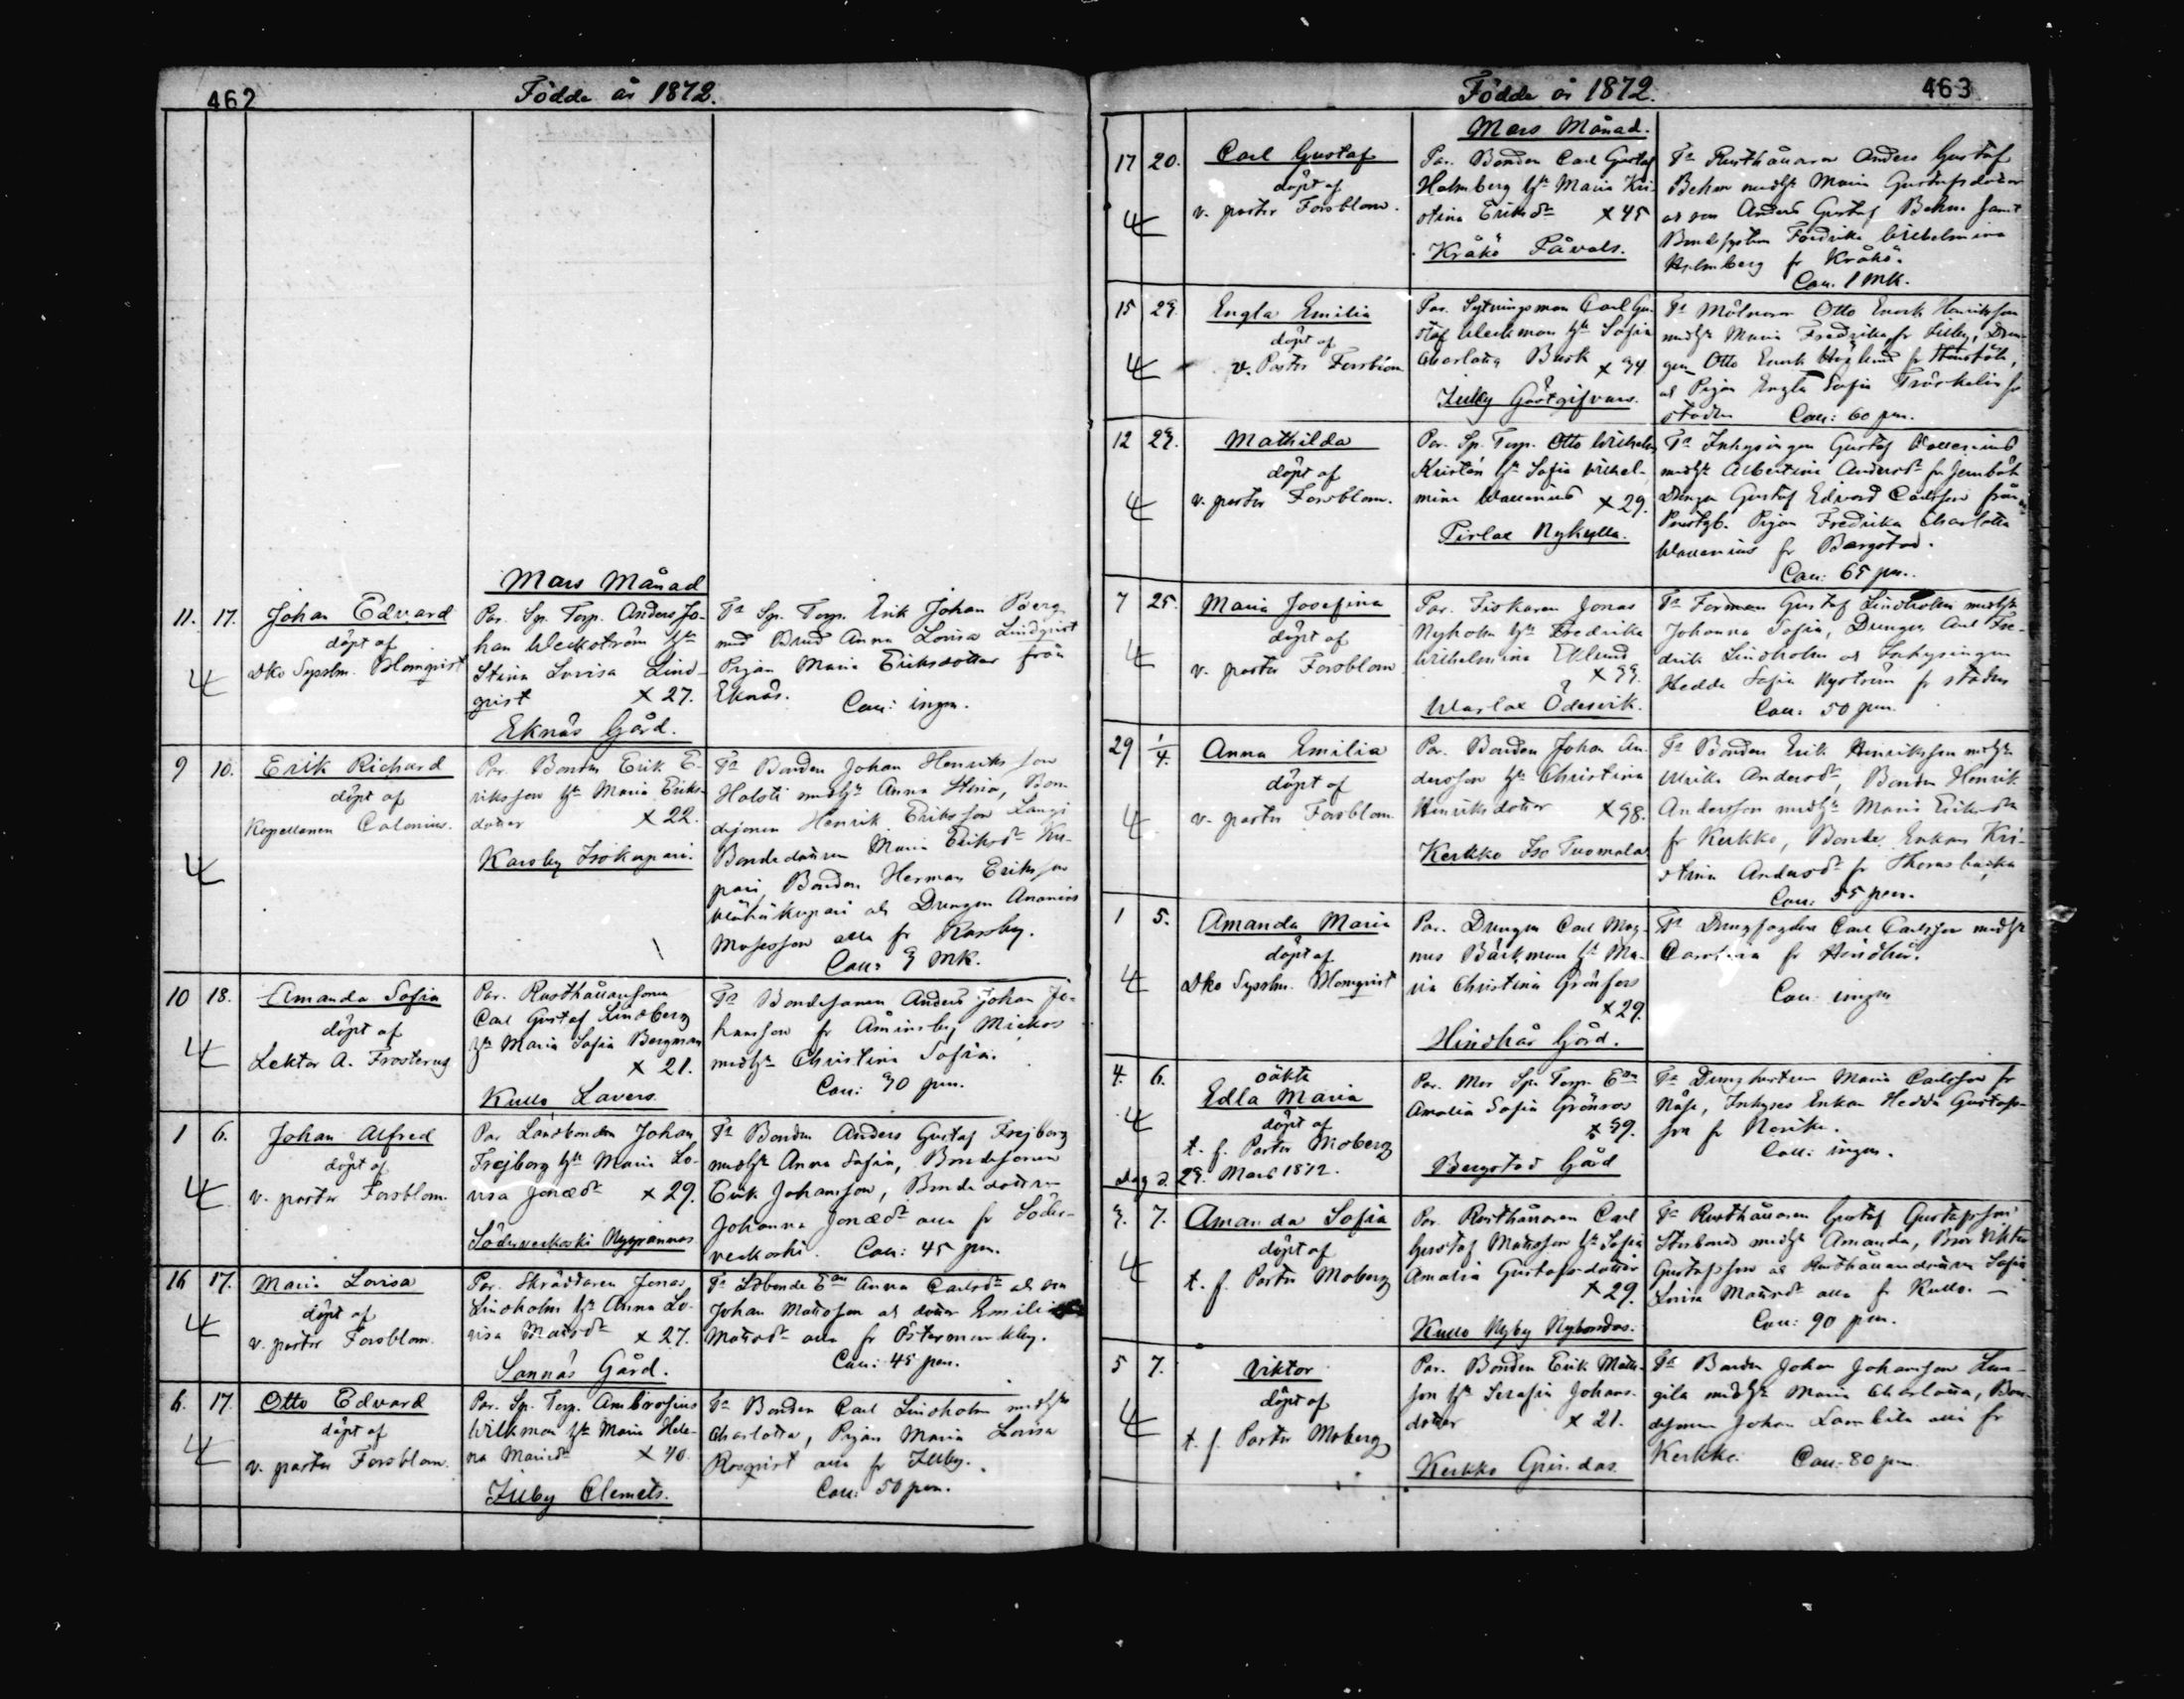 462
Födde år 1872.
Mars Månad
11. 17. Johan Edvard
döpt af
Dko Sysslm. Blomqvist
Par. Sp. Torp. Anders Jo-
han Weckström h:u
Stina Lovisa Lind-
qvist x 27.
Eknäs Gård.
T:a Sp. Torp. Erik Johan
med Brud Anna Lovisa Lindqvist
Pigan Maria Eriksdotter från
Eknäs. Coll: ingen.
9 10. Erik Richard
döpt af
Kapellanen Calonius.
Par. Bonden Erik E-
riksson h:u Maria Eriks-
dotter x 22.
Karsby Isokupari.
T:a Bonden Johan Henriksson
Holsti med h:u Anna Stina, Bon-
desonen Henrik Eriksson
Bondedottren Maria Eriksd:r Ku-
pari, Bonden Herman Eriksson
Vähäkupari och Drengen Ananias
Mosesson alla fr Karsby.
Coll: 3 mk.
10 18. Amanda Sofia
döpt af
Lektor A. Frosterus
Par. Rusthållarsonen
Carl Gustaf Lindberg
h:u Maria Sofia Bergman
x 21.
Kullo Lavers.
T:a Bondesonen Anders Johan Jo-
hansson fr Åminsby Mickos
med h:u Christina Sofia.
Coll: 30 pen.
1 6. Johan Alfred
döpt af
v. pastor Forsblom.
Par. Landbonden Johan
Frejborg h:u Maria Lo-
visa Jonæd:r x 29.
Söderveckoski
T:a Bonden Anders Gustaf Frejborg
med h:u Anna Sofia, Bondesonen
Erik Johansson, Bondedottren
Johanna Jonæd:r alla fr Söder-
veckoski. Coll: 45 pen.
16 17. Maria Lovisa
döpt af
v. pastor Forsblom.
Par. Skräddaren Jonas
Lindholm h:u Anna Lo-
visa Matsd:r x 27.
Sannäs Gård.
T:a Anna Carlsd:r och son
Johan Mattsson och dotter Emilia
Mattsd:r alla fr Östermunkby.
Coll: 45 pen.
6. 17. Otto Edvard
döpt af
v. pastor Forsblom.
Par. Sp. Torp. Ambrosius
Wilkman h:u Maria Hele-
na x 40.
Illby Clemets.
T:a Bonden Carl Lindholm med h:u
Charlotta, Pigan Maria Lovisa
Rosqvist alla fr Illby.
Coll: 50 pen.
Födde år 1872.
463
Mars Månad.
17 20. Carl Gustaf
döpt af
v. pastor Forsblom.
Par. Bonden Carl Gustaf
Holmberg h:u Maria Kri-
stina Eriksd:r x 45
Kråkö Påvals.
T:a Rusthållaren Anders Gustaf
Behm med h:u Maria Gustafsdotter
och son Anders Gustaf Behm samt
Fredrika Wilhelmina
Holmberg fr Kråkö.
Coll. 1 mk.
15 23. Engla Emilia
döpt af
v. Pastor Forsblom
Par. Sytningsman Carl Gu-
staf Weckman h:u Sofia
Charlotta x 34
Illby Gästgifvars.
T:a Mjölnaren Otto Enock Henriksson
med h:u Maria Fredrika fr Illby, Dren-
gen Otto Enock Höglund fr
och Pigan Engla Sofia fr
staden Coll: 60 pen.
12 23. Mathilda
döpt af
v. pastor Forsblom.
Par. Sp. Torp. Otto Wilhelm
Kristén h:u Sofia Wilhel-
mina Wallenius x 29.
Pirlax Nykulla.
T:a Inhysingen Gustaf Wallenius
med h:u Albertina Andersd:r fr Jernböle
Drengen Gustaf Edvard Carlsson från
Prestgb. Pigan Fredrika Charlotta
Wallenius fr Borgstad.
Coll: 65 pen.
7 25. Maria Josefina
döpt af
v. pastor Forsblom
Par. Fiskaren Jonas
Nyholm h:u Fredrika
Wilhelmina Eklund
x 33.
Warlax Ödesvik.
T:a Forman Gustaf Lindholm med h:u
Johanna Sofia, Drengen Carl Fre-
drik Lindholm och Inhysingen
Hedda Sofia Nyström fr staden
Coll: 50 pen.
29 1/4. Anna Emilia
döpt af
v. pastor Forsblom.
Par. Bonden Johan An-
dersson h:u Christina
Henriksdotter x 38.
Kerkko Iso Tuomala
T:a Bonden Erik Henriksson med h:u
Ulrika Andersd:r, Bonden Henrik
Andersson med h:u Maria Eriksd:r
fr Kerkko, Bonde Enkan Kri-
stina Andersd:r fr Thorsbacka
Coll: 55 pen.
1 5. Amanda Maria
döpt af
Dko Sysslm. Blomqvist
Par. Drengen Carl Mag-
nus Bäckman h:u Ma-
ria Christina Grönfors
x 29.
Hindhår Gård.
T:a Drengfogden Carl Carlsson med h:u
Carolina fr Hindhår.
Coll: ingen
4. 6. oäkta
Edla Maria
döpt af
t. f. Pastor Moberg
dag d. 23. Mars 1872.
Par. Mor Sp. Torp. E:an
Amalia Sofia Grönroos
x 39.
Borgstad Gård
T:a Drenghustrun Maria Carlsson fr
Näse, Inhyses Enkan Hedda Gustafs-
son fr Norike.
Coll: ingen.
3. 7. Amanda Sofia
döpt af
t. f. Pastor Moberg
Par. Rusthållaren Carl
Gustaf Mattsson h:u Sofia
Amalia Gustafsdotter
x 29.
Kullo Nyby Nybondas.
T:a Rusthållaren Gustaf Gustafsson
Storbonds med h:u Amanda, Bror Viktor
Gustafsson och Rusthållaredottren Sofia
Lovisa Mattsd:r alla fr Kullo.
Coll: 90 pen.
5 7. Viktor
döpt af
t. f. Pastor Moberg
Par. Bonden Erik Matts-
son h:u Serafia Johans-
dotter x 21.
Kerkko
T:a Bonden Johan Johansson
med h:u Maria Charlotta, Bon-
desonen Johan alla fr
Kerkko. Coll: 80 pen.